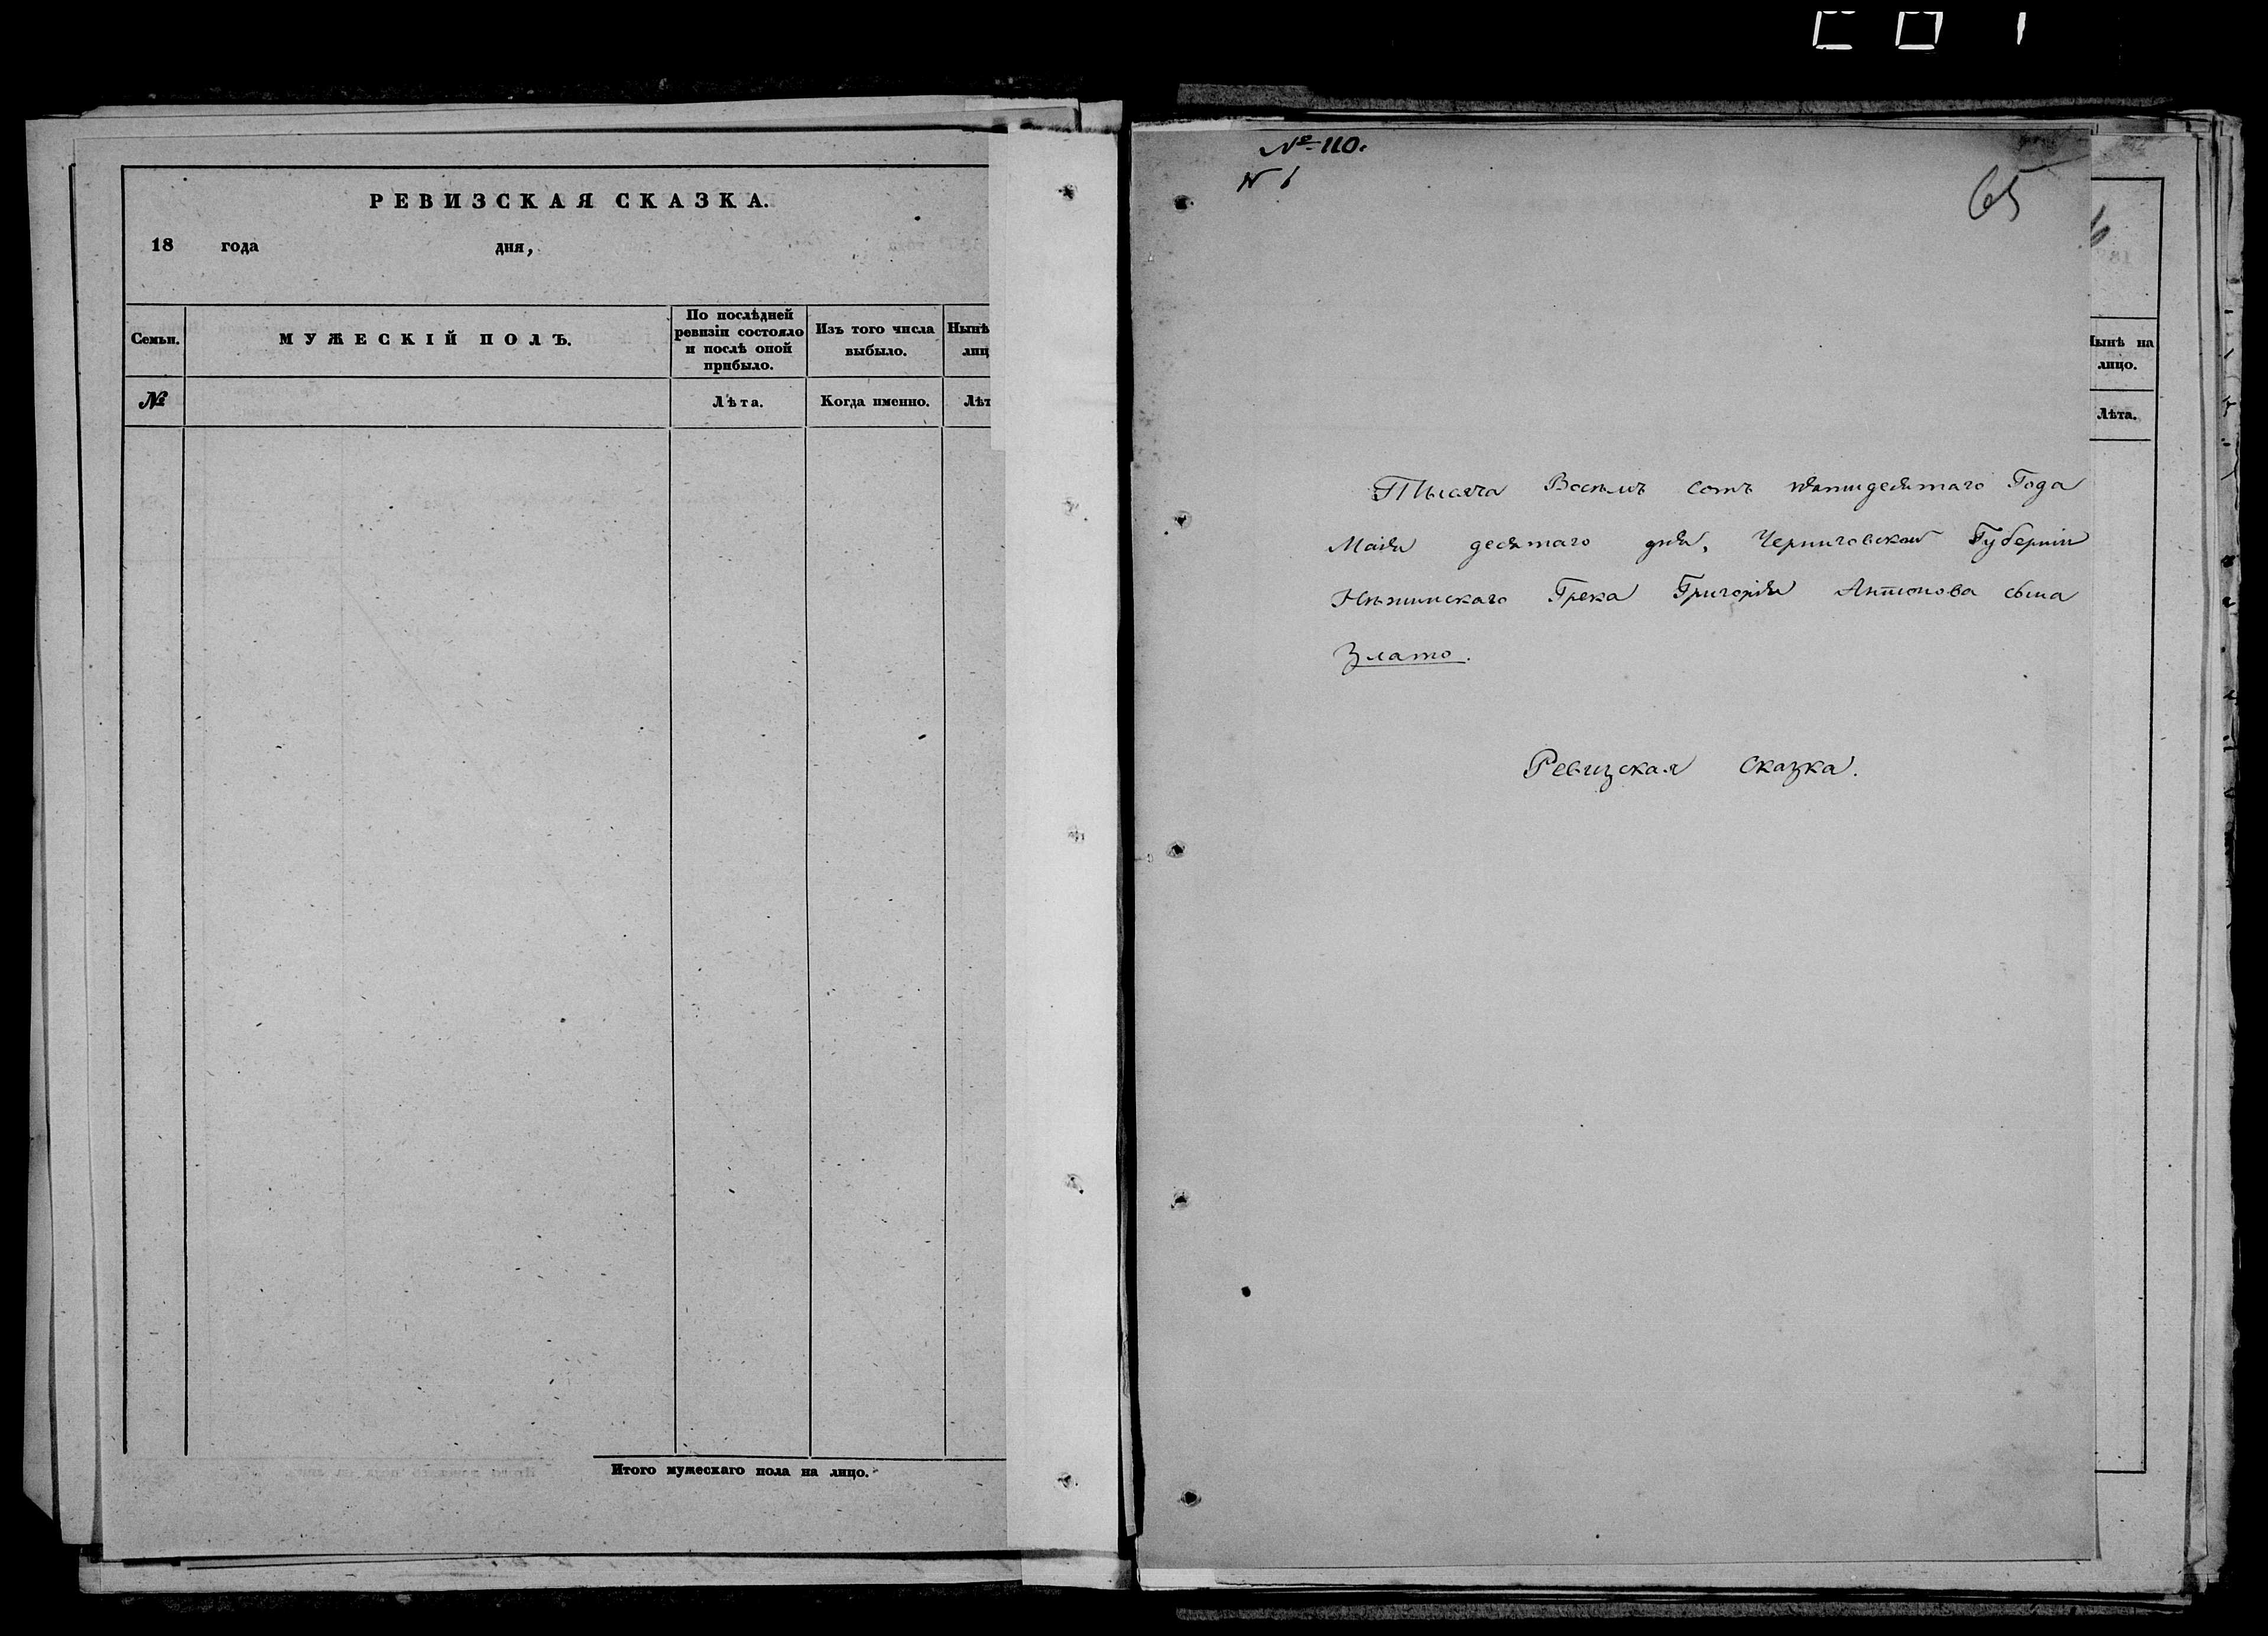 РЕВИЗСКАЯ СКАЗКА.
18 года дня,
Семьи. МУЖЕСКІЙ ПОЛЪ. По послѣдней ревизіи состояло и послѣ оной прибыло. Изъ того числа выбыло. Нынѣ лиц
№ Лѣта. Когда именно. Лѣт
Итого мужескаго пола на лицо.
№ 110.
65
Тысяча Восемъ сотъ пятидесятаго Года
Маія десятаго дня, Черниговской Губерніи
Нѣжинскаго Грека Григорія Антонова сына
Злато.
Ревизская Сказка.
Нынѣ на
лицо.
Лѣта.